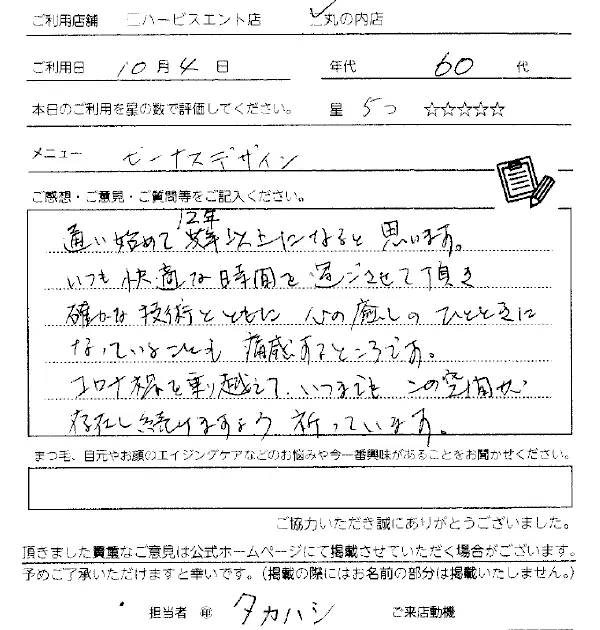 ご利用店舗 □ハービスエント店 ☑丸の内店
ご利用日 10月4日 年代 60代
本日のご利用を星の数で評価してください。 星 5つ ☆☆☆☆☆
メニュー ビーナスデザイン
ご感想・ご意見・ご質問等をご記入ください。
12年
通い始めて 以上になると思います。
いつも快適な時間を過ごさせて頂き
確かな技術とともに 心の癒しのひとときに
なっていることも 痛感するところです。
コロナ禍を乗り越えて、いつまでも この空間が
存在し続けますよう 祈っています。
まつ毛、目元やお顔のエイジングケアなどのお悩みや今一番興味があることをお聞かせください。
ご協力いただき誠にありがとうございました。
頂きました貴重なご意見は公式ホームページにて掲載させていただく場合がございます。
予めご了承いただけますと幸いです。(掲載の際にはお名前の部分は掲載いたしません。)
担当者 ㊞ タカハシ ご来店動機